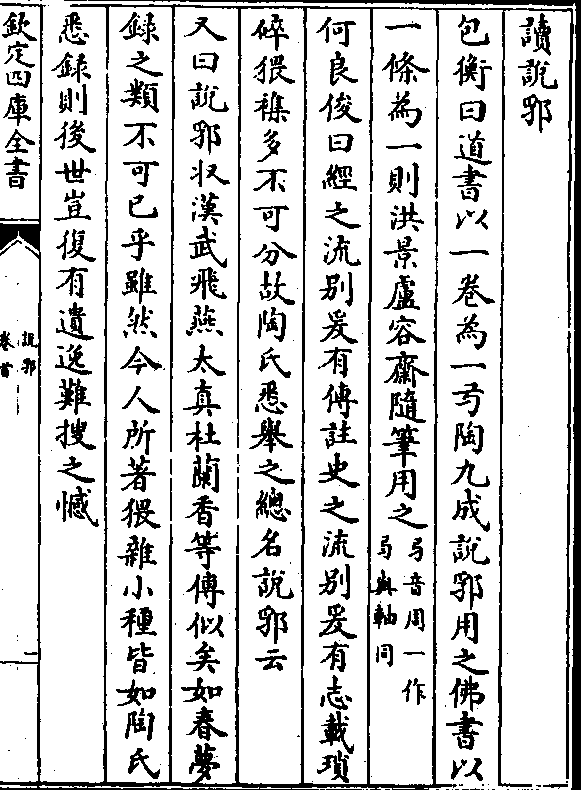 讀說郛
包衡曰道書以一卷為一弓陶九成說郛用之佛書以
一條為一則洪景盧容齋隨筆用之弓音周一作
弓與軸同
何良俊曰經之流别爰有傳註史之流别爰有志載瑣
碎猥襍多不可分故陶氏悉舉之總名說郛云
又曰說郛收漢武飛燕太真杜蘭香等傳似矣如春夢
録之類不可已乎雖然今人所著猥雜小種皆如陶氏
悉録則後世豈復有遺逸難搜之憾
欽定四庫全書
說郛
卷首
一